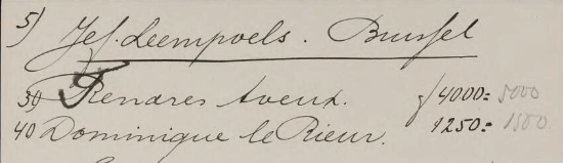 5) Jef. Leempoels. Brussel
39 Tendres Aveux. f 4000= 5000
40 Dominique le Rieur. 1250= 1500